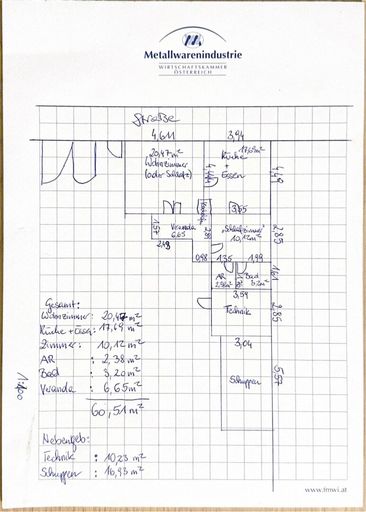 Metallwarenindustrie
WIRTSCHAFTSKAMMER
ÖSTERREICH
Straße
4,61
3,94
20,47m²
Wohnzimmer
(oder Schlafz)
17,69m²
Küche
+
Essen
4,49
3,65
Veranda
6,65
1,57
2,49
"Schlafzimmer"
10,12m²
2,85
0,98
1,35
1,99
AR
2,38m²
Bad
3,2m²
1,61
3,59
Technik
2,85
3,04
Schuppen
5,57
Gesamt:
Wohnzimmer: 20,47 m²
Küche + Essen: 17,69 m²
Zimmer: 10,12 m²
AR : 2,38 m²
Bad : 3,20 m²
Veranda : 6,65 m²
60,51 m²
1:100
Nebengeb:
Technik : 10,23 m²
Schuppen : 16,93 m²
www.fmwi.at